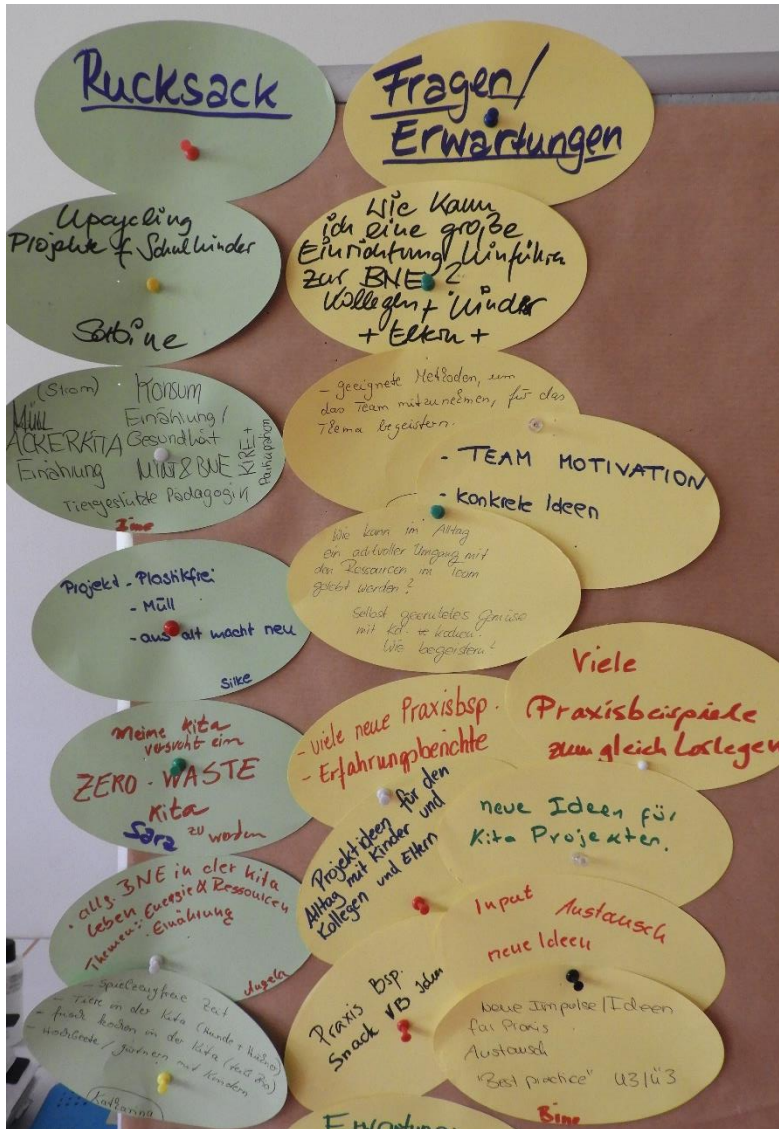 Rucksack
Upcycling
Projekte f Schulkinder
Sabine
(Strom)
Müll
ACKERKITA
Ernährung
Konsum
Ernährung/
Gesundheit
MINT & BNE
KIRE +
Partizipation
Tiergestützte Pädagogik
Projekt - Plastikfrei
- Müll
- aus alt macht neu
Silke
Meine Kita
versucht ein
ZERO-WASTE
Kita
zu werden
Sara
allg. BNE in der Kita
leben
Themen: Energie & Ressourcen
Ernährung
Angela
- Spielzeugfreie Zeit
- Tiere in der Kita (Hunde + Hühner)
- frisch kochen in der Kita
- Hochbeete / gärtnern mit Kindern
Katharina
Fragen/
Erwartungen
Wie kann
ich eine große
Einrichtung hinführen
zur BNE?
Kollegen + Kinder
+ Eltern +
- geeignete Methoden, um
das Team mitzunehmen, für das
Thema begeistern.
- TEAM MOTIVATION
- konkrete Ideen
Wie kann im Alltag
ein achtvoller Umgang mit
den Ressourcen im Team
gelebt werden?
Selbst geerntetes Gemüse
mit Kd. kochen.
Wie begeistern?
Viele
Praxisbeispiele
zum gleich Loslegen
- viele neue Praxisbsp.
- Erfahrungsberichte
Projektideen für den
Alltag mit Kinder und
Kollegen und Eltern
neue Ideen für
Kita Projekten.
Input Austausch
neue Ideen
Praxis Bsp.
Snack VB
Neue Impulse/Ideen
für Praxis
Austausch
"Best practice" U3/Ü3
Bine